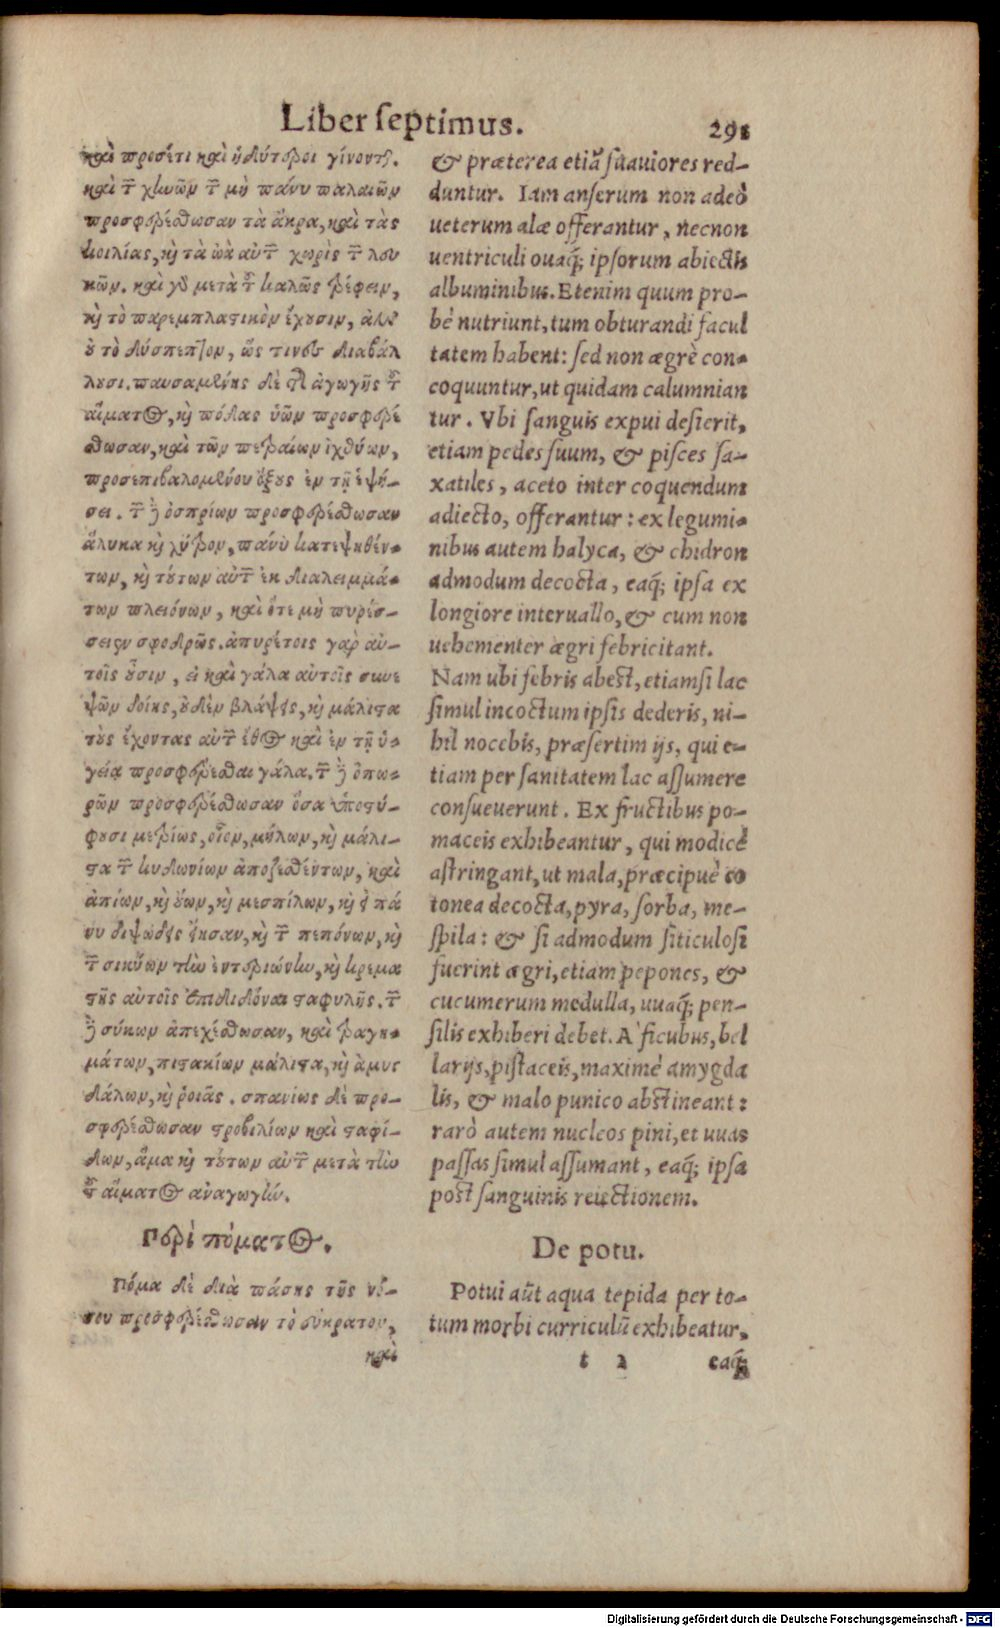 Liber ſeptimus. 291
καὶ προσέτι καὶ ἡδύτεροι γίνονται.
καὶ τῶν χηνῶν τῶν μὴ πάνυ παλαιῶν
προσφερέσθωσαν τὰ ἄκρα, καὶ τὰς
κοιλίας, κὶ τὰ ὠὰ αὐτῶν χωρὶς τῶν λευ
κῶν. καὶ γὸ μετὰ τοῦ καλῶς τρέφειν,
κὶ τὸ παρεμπλαστικὸν ἔχουσιν, ἀλλ'
οὐ τὸ δύσπεπτον, ὥς τινες διαβάλ
λουσι. παυσαμένης δὲ τῆς ἀγωγῆς τοῦ
αἵματος, κὶ πόδας ὑῶν προσφερέ
σθωσαν, καὶ τῶν πετραίων ἰχθύων,
προσεπιβαλομένου ὄξους ἐν τῇ ἑψή-
σει. τῶν δὲ ὀσπρίων προσφερέσθωσαν
ἅλυκα κὶ χίδρον, πάνυ κατεψηθέν-
των, κὶ τούτων αὐτῶν ἐκ διαλειμμά-
των πλειόνων, καὶ ὅτε μὴ πυρέσ-
σειεν σφοδρῶς. ἀπυρέτοις γὰρ αὐ-
τοῖς οὖσιν, εἰ καὶ γάλα αὐτοῖς συνε
ψῶν δοίης, οὐδὲν βλάψεις, κὶ μάλιστα
τοὺς ἔχοντας αὐτῶν ἔθος καὶ ἐν τῇ ὑ-
γείᾳ προσφέρεσθαι γάλα. τῶν δὲ ὀπω-
ρῶν προσφερέσθωσαν ὅσα ὑποστύ-
φουσι μετρίως, οἷον, μήλων, κὶ μάλι-
στα τῶν κυδωνίων ἀποζεσθέντων, καὶ
ἀπίων, κὶ οὔων, κὶ μεσπίλων, κὶ εἰ πά
νυ διψώδεις ἦσαν, κὶ τῶν πεπόνων, κὶ
τῶν σικύων τὴν ἐντεριώνην, κὶ κρεμα
στῆς αὐτοῖς ἐπιδιδόναι σταφυλῆς. τῶν
δὲ σύκων ἀπεχέσθωσαν, καὶ τραγη-
μάτων, πιστακίων μάλιστα, κὶ ἀμυγ
δάλων, κὶ ῥοιᾶς. σπανίως δὲ προ-
σφερέσθωσαν στροβιλίων καὶ σταφί-
δων, ἅμα κὶ τούτων αὐτῶν μετὰ τὴν
τοῦ αἵματος ἀναγωγήν.
Περὶ πόματος.
Πόμα δὲ διὰ πάσης τῆς νό-
σου προσφερέσθωσαν τὸ εὔκρατον,
καὶ
& præterea etiã ſuauiores red-
duntur. Iam anſerum non adeò
ueterum alæ offerantur, necnon
uentriculi ouaq́; ipſorum abiectis
albuminibus. Etenim quum pro-
bè nutriunt, tum obturandi facul
tatem habent: ſed non ægrè con-
coquuntur, ut quidam calumnian
tur. Vbi ſanguis expui deſierit,
etiam pedes ſuum, & piſces ſa-
xatiles, aceto inter coquendum
adiecto, offerantur: ex legumi-
nibus autem halyca, & chidron
admodum decocta, eaq́; ipſa ex
longiore interuallo, & cum non
uehementer ægri febricitant.
Nam ubi febris abeſt, etiamſi lac
ſimul incoctum ipſis dederis, ni-
hil nocebis, præſertim ijs, qui e-
tiam per ſanitatem lac aſſumere
conſueuerunt. Ex fructibus po-
maceis exhibeantur, qui modicè
aſtringant, ut mala, præcipuè co
tonea decocta, pyra, ſorba, me-
ſpila: & ſi admodum ſiticuloſi
fuerint ægri, etiam pepones, &
cucumerum medulla, uuaq́; pen-
ſilis exhiberi debet. A ficubus, bel
larijs, piſtaceis, maximè amygda
lis, & malo punico abſtineant:
rarò autem nucleos pini, et uuas
paſſas ſimul aſſumant, eaq́; ipſa
poſt ſanguinis reiectionem.
De potu.
Potui aũt aqua tepida per to-
tum morbi curriculũ exhibeatur,
t 2 eaq́;
Digitalisierung gefördert durch die Deutsche Forschungsgemeinschaft - DFG